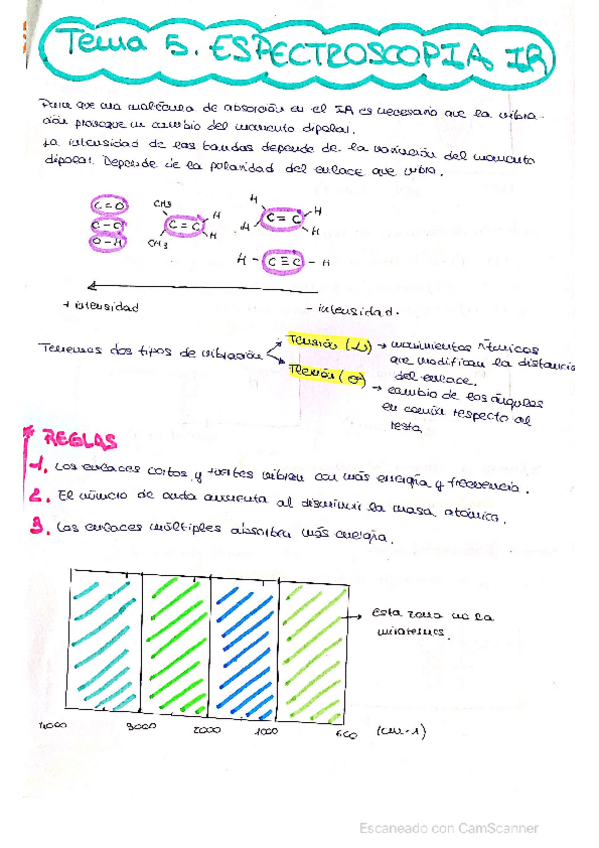 Tema 5. ESPECTROSCOPIA IR
Para que una molécula de absorción en el IR es necesario que la vibra-
ción provoque un cambio del momento dipolar.
La intensidad de las bandas depende de la variación del momento
dipolar. Depende de la polaridad del enlace que vibra.
C=O
C-C
O-H
CH3
CH3
C=C
H
H
H
H
C=C
H
H
H - C≡C - H
+ intensidad
- intensidad.
Tenemos dos tipos de vibración
Tensión (ν) → movimientos rítmicos
que modifican la distancia
del enlace.
Flexión (σ) → cambio de los ángulos
en común respecto al
resto.
* REGLAS
1. Los enlaces cortos y fuertes vibran con más energía y frecuencia.
2. El número de onda aumenta al disminuir la masa atómica.
3. Los enlaces múltiples absorben más energía.
→ esta zona no la
miraremos.
4000 3000 2000 1000 600 (cm-1)
Escaneado con CamScanner